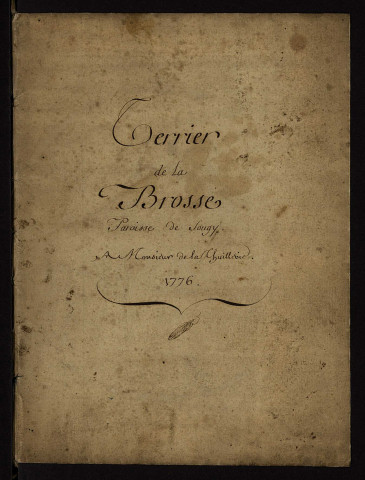 Terrier
de la
Brosse
Paroisse de Sougy.
A Monsieur de la
1776